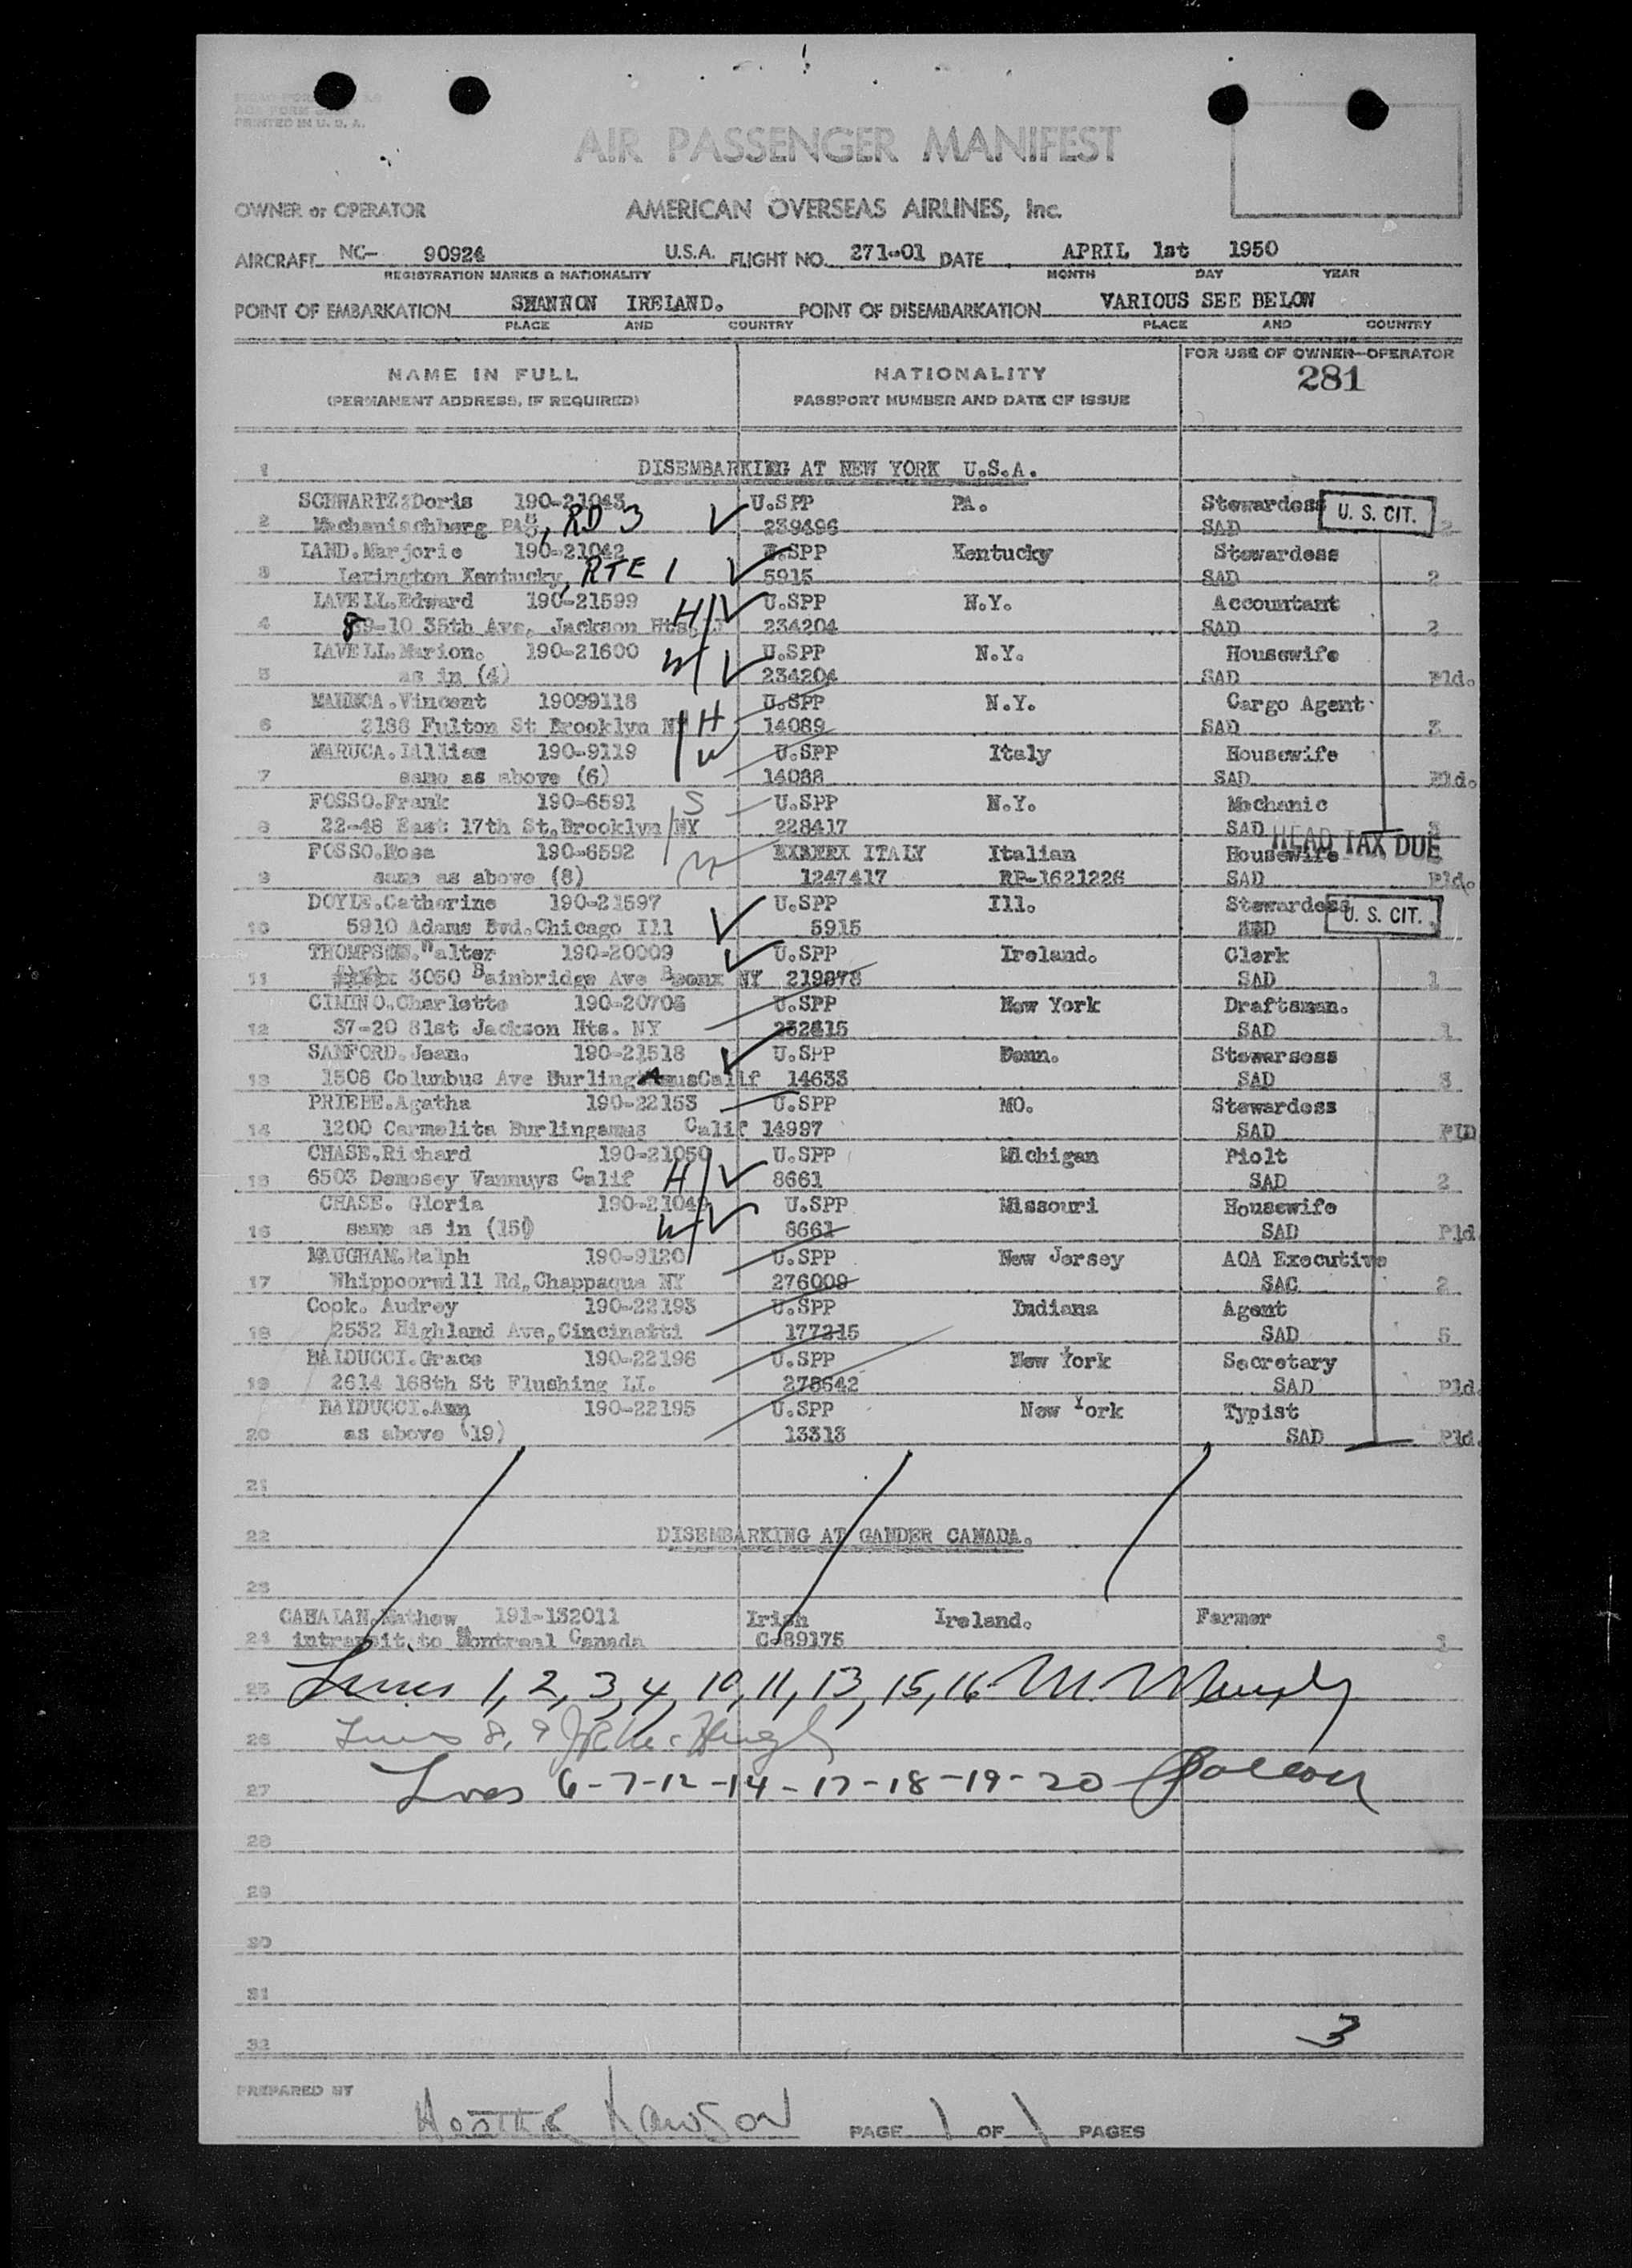 PRINTED IN U. S. A.
AIR PASSENGER MANIFEST
OWNER or OPERATOR AMERICAN OVERSEAS AIRLINES, Inc.
AIRCRAFT NC- 90924 U.S.A. FLIGHT NO. 271-01 DATE APRIL 1st 1950
REGISTRATION MARKS & NATIONALITY MONTH DAY YEAR
POINT OF EMBARKATION SHANNON IRELAND. POINT OF DISEMBARKATION VARIOUS SEE BELOW
PLACE AND COUNTRY PLACE AND COUNTRY
FOR USE OF OWNER-OPERATOR
NAME IN FULL NATIONALITY 281
(PERMANENT ADDRESS, IF REQUIRED) PASSPORT NUMBER AND DATE OF ISSUE
1 DISEMBARKING AT NEW YORK U.S.A.
SCHWARTZ:Doris 190-21043 U.SPP PA. Stewardess U. S. CIT.
2 Mechanischberg PA, RD 3 239496 SAD 2
LAND.Marjorie 190-21042 U.SPP Kentucky Stewardess
3 Lexington Kentucky, RTE 1 5915 SAD 2
LAVELL.Edward 190-21599 H U.SPP N.Y. Accountant
4 89-10 35th Ave, Jackson Hts, 234204 SAD 2
LAVELL.Marion. 190-21600 W U.SPP N.Y. Housewife
5 as in (4) 234204 SAD Pld.
MARUCA.Vincent 19099118 U.SPP N.Y. Cargo Agent
6 2186 Fulton St Brooklyn NY H 14089 SAD 3
MARUCA.Lillian 190-9119 W U.SPP Italy Housewife
7 same as above (6) 14088 SAD Pld.
FOSSO.Frank 190-6591 S U.SPP N.Y. Mechanic
8 22-48 East 17th St,Brooklyn NY 228417 SAD 3
HEAD TAX DUE
FOSSO.Rosa 190-6592 ITALY Italian Housewife
9 same as above (8) 1247417 RP-1621226 SAD Pld.
DOYLE.Catherine 190-21597 U.SPP Ill. Stewardess U. S. CIT.
10 5910 Adams Bvd.Chicago Ill 5915
THOMPSON.Walter 190-20009 U.SPP Ireland. Clerk
11 3050 Bainbridge Ave Bronx NY 219878 SAD 1
CIMINO.Charlotte 190-20703 U.SPP New York Draftsman.
12 37-20 81st Jackson Hts. NY 232815 SAD 1
SANFORD.Jean. 190-21518 U.SPP Denn. Stewarsess
13 1508 Columbus Ave Calif 14633 SAD 3
PRIEBE.Agatha 190-22153 U.SPP MO. Stewardess
14 1200 Carmelita Burlingamus Calif 14997 SAD PLD
CHASE.Richard 190-21050 U.SPP Michigan Piolt
15 6503 Demosey Vannuys Calif H 8661 SAD 2
CHASE. Gloria 190-21049 U.SPP Missouri Housewife
16 same as in (15) W 8661 SAD Pld
MAUGHAM.Ralph 190-9120 U.SPP New Jersey AOA Executive
17 Whippoorwill Rd,Chappaqua NY 276009 SAC 2
Cook. Audrey 190-22193 U.SPP Indiana Agent
18 2532 Highland Ave,Cincinatti 177215 SAD 5
BALDUCCI.Grace 190-22196 U.SPP New York Secretary
19 2614 168th St Flushing LI. 278642 SAD Pld.
BALDUCCI.Ann 190-22195 U.SPP New York Typist
20 as above (19) 13313 SAD Pld.
21
22 DISEMBARKING AT GANDER CANADA.
23
CAHALAN.Mathew 191-132011 Irish Ireland. Farmer
24 intransit to Montreal Canada C-89175
25 Lines 1, 2, 3, 4, 10, 11, 13, 15, 16
26 Lines 8, 9
27 Lines 6-7-12-14-17-18-19-20
28
29
30
31
32 3
PREPARED BY
PAGE 1 OF 1 PAGES